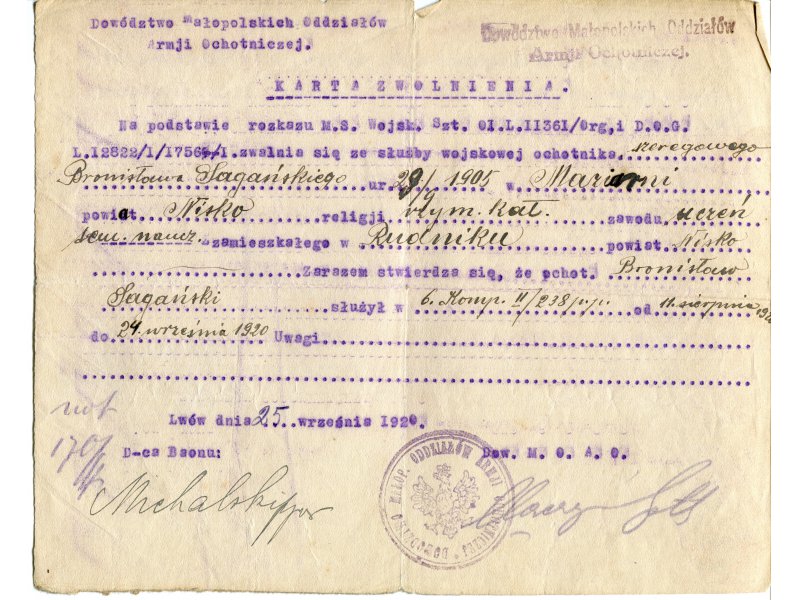 Dowództwo Małopolskich Oddziałów
Armji Ochotniczej.
Dowództwo Małopolskich Oddziałów
Armji Ochotniczej.
KARTA ZWOLNIENIA.
Na podstawie rozkazu M.S. Wojsk. Szt. OI.L.II36I/Org,i D.O.G.
L.I2822/I/I756/I.zwalnia się ze służby wojskowej ochotnika, szeregowego
Bronisława Sagańskiego ur. 29/9 1905 w
powiat. Nisko religji rzym. kat. zawodu uczeń
sem. naucz. zamieszkałego w Rudniku powiat Nisko
Zarazem stwierdza się, że pchot. Bronisław
Sagański służył w 6. Komp. II/238 p.p. od 11. sierpnia 1920
do 24 września 1920 Uwagi
not
170/
Lwów dnia 25. września 1920.
D-ca Baonu: Dow. M. O. A. O.
Michalski ppor
DOWÓDZTWO MAŁOP. ODDZIAŁÓW ARMJI OCHOTNICZEJ